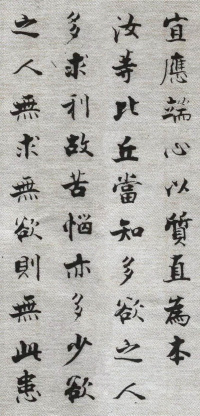 宜應端心以質直為本
汝等比丘當知多欲之人
多求利故苦惱亦多少欲
之人無求無欲則無此患